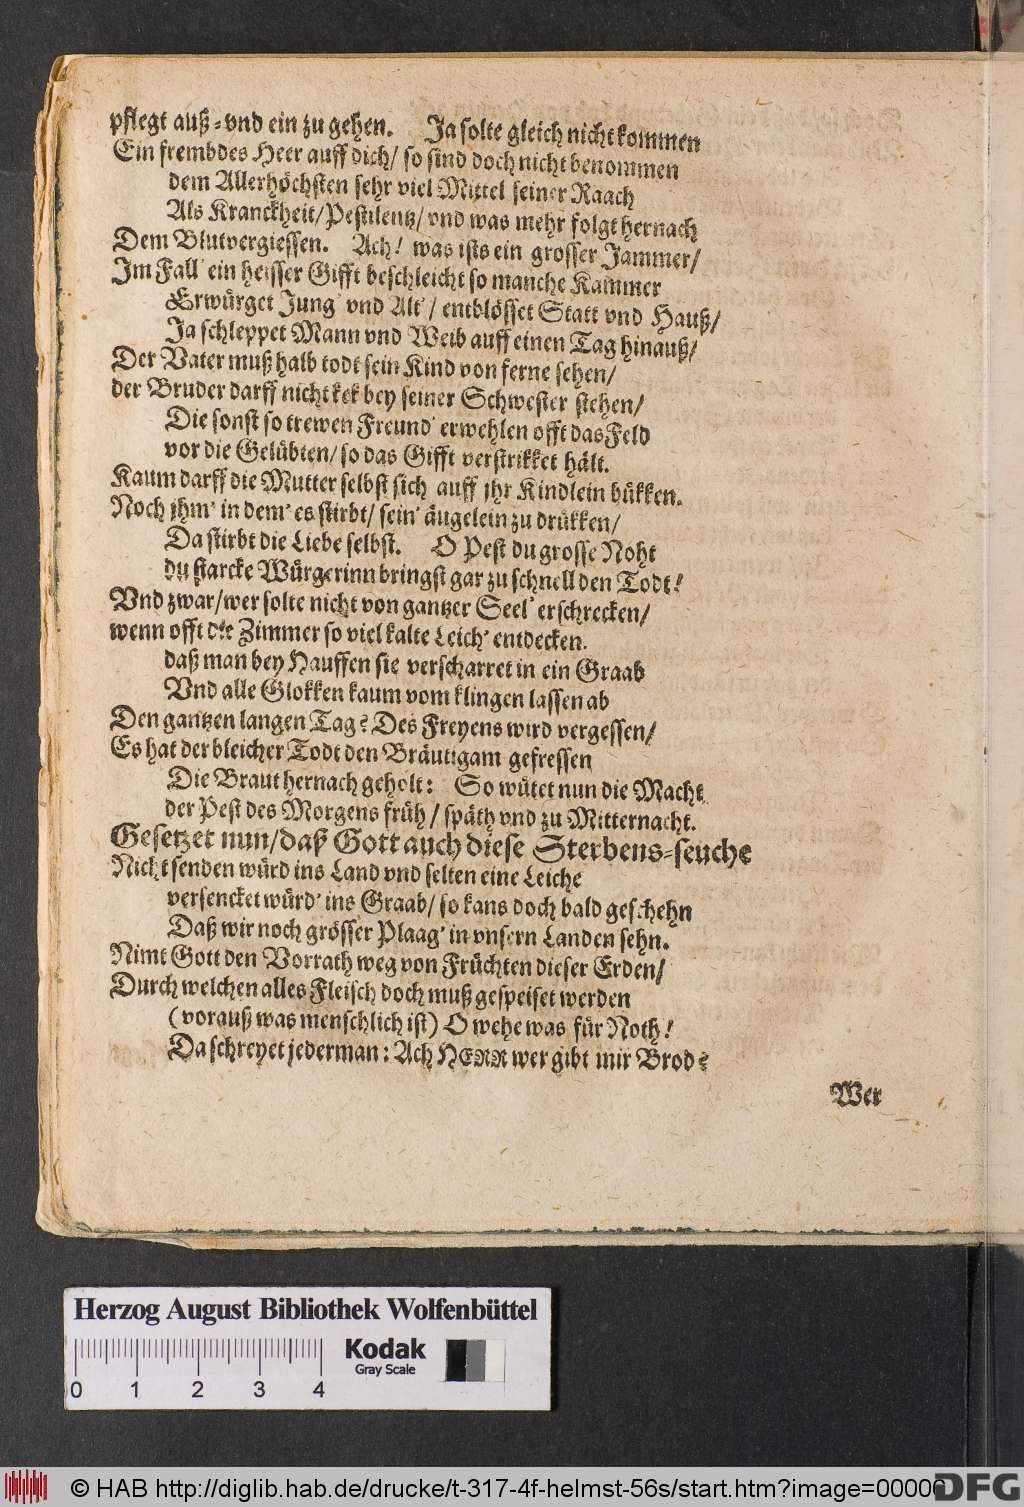 pflegt auß-vnd ein zu gehen. Ja solte gleich nicht kommen
Ein frembdes Heer auff dich/ so sind doch nicht benommen
dem Allerhöchsten sehr viel Mittel seiner Raach
Als Kranckheit/Pestilentz/ vnd was mehr folgt hernach
Dem Blutvergiessen. Ach! was ists ein grosser Jammer/
Im Fall' ein heisser Gifft beschleicht so manche Kammer
Erwürget Jung' vnd Alt' / entblösset Statt vnd Hauß/
Ja schleppet Mann vnd Weib auff einen Tag hinauß/
Der Vater muß halb todt sein Kind von ferne sehen/
der Bruder darff nicht kek bey seiner Schwester stehen/
Die sonst so trewen Freund' erwehlen offt das Feld
vor die Gelübten/ so das Gifft verstrikket hält.
Kaum darff die Mutter selbst sich auff jhr Kindlein bükken.
Noch jhm' in dem' es stirbt/ sein' äugelein zu drükken/
Da stirbt die Liebe selbst. O Pest du grosse Noht
du starcke Würgerinn bringst gar zu schnell den Todt!
Vnd zwar/wer solte nicht von gantzer Seel' erschrecken/
wenn offt die Zimmer so viel kalte Leich' entdecken.
daß man bey Hauffen sie verscharret in ein Graab
Vnd alle Glokken kaum vom klingen lassen ab
Den gantzen langen Tag? Des Freyens wird vergessen/
Es hat der bleicher Todt den Bräutigam gefressen
Die Braut hernach geholt: So wütet nun die Macht
der Pest des Morgens früh/ späth vnd zu Mitternacht.
Gesetzet nun/daß Gott auch diese Sterbens-seuche
Nicht senden würd ins Land vnd selten eine Leiche
versencket würd' ins Graab/ so kans doch bald geschehn
Daß wir noch grösser Plaag' in vnsern Landen sehn.
Nimt Gott den Vorrath weg von Früchten dieser Erden/
Durch welchen alles Fleisch doch muß gespeiset werden
(vorauß was menschlich ist) O wehe was für Noth!
Da schreyet jederman: Ach HERR wer gibt mir Brod?
Wer
Herzog August Bibliothek Wolfenbüttel
Kodak
Gray Scale
0 1 2 3 4
© HAB http://diglib.hab.de/drucke/t-317-4f-helmst-56s/start.htm?image=00006
DFG